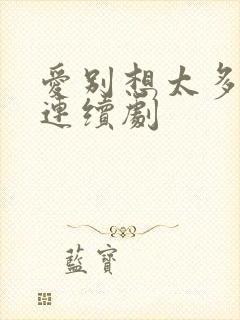 愛別想太多
連續劇
藍寶